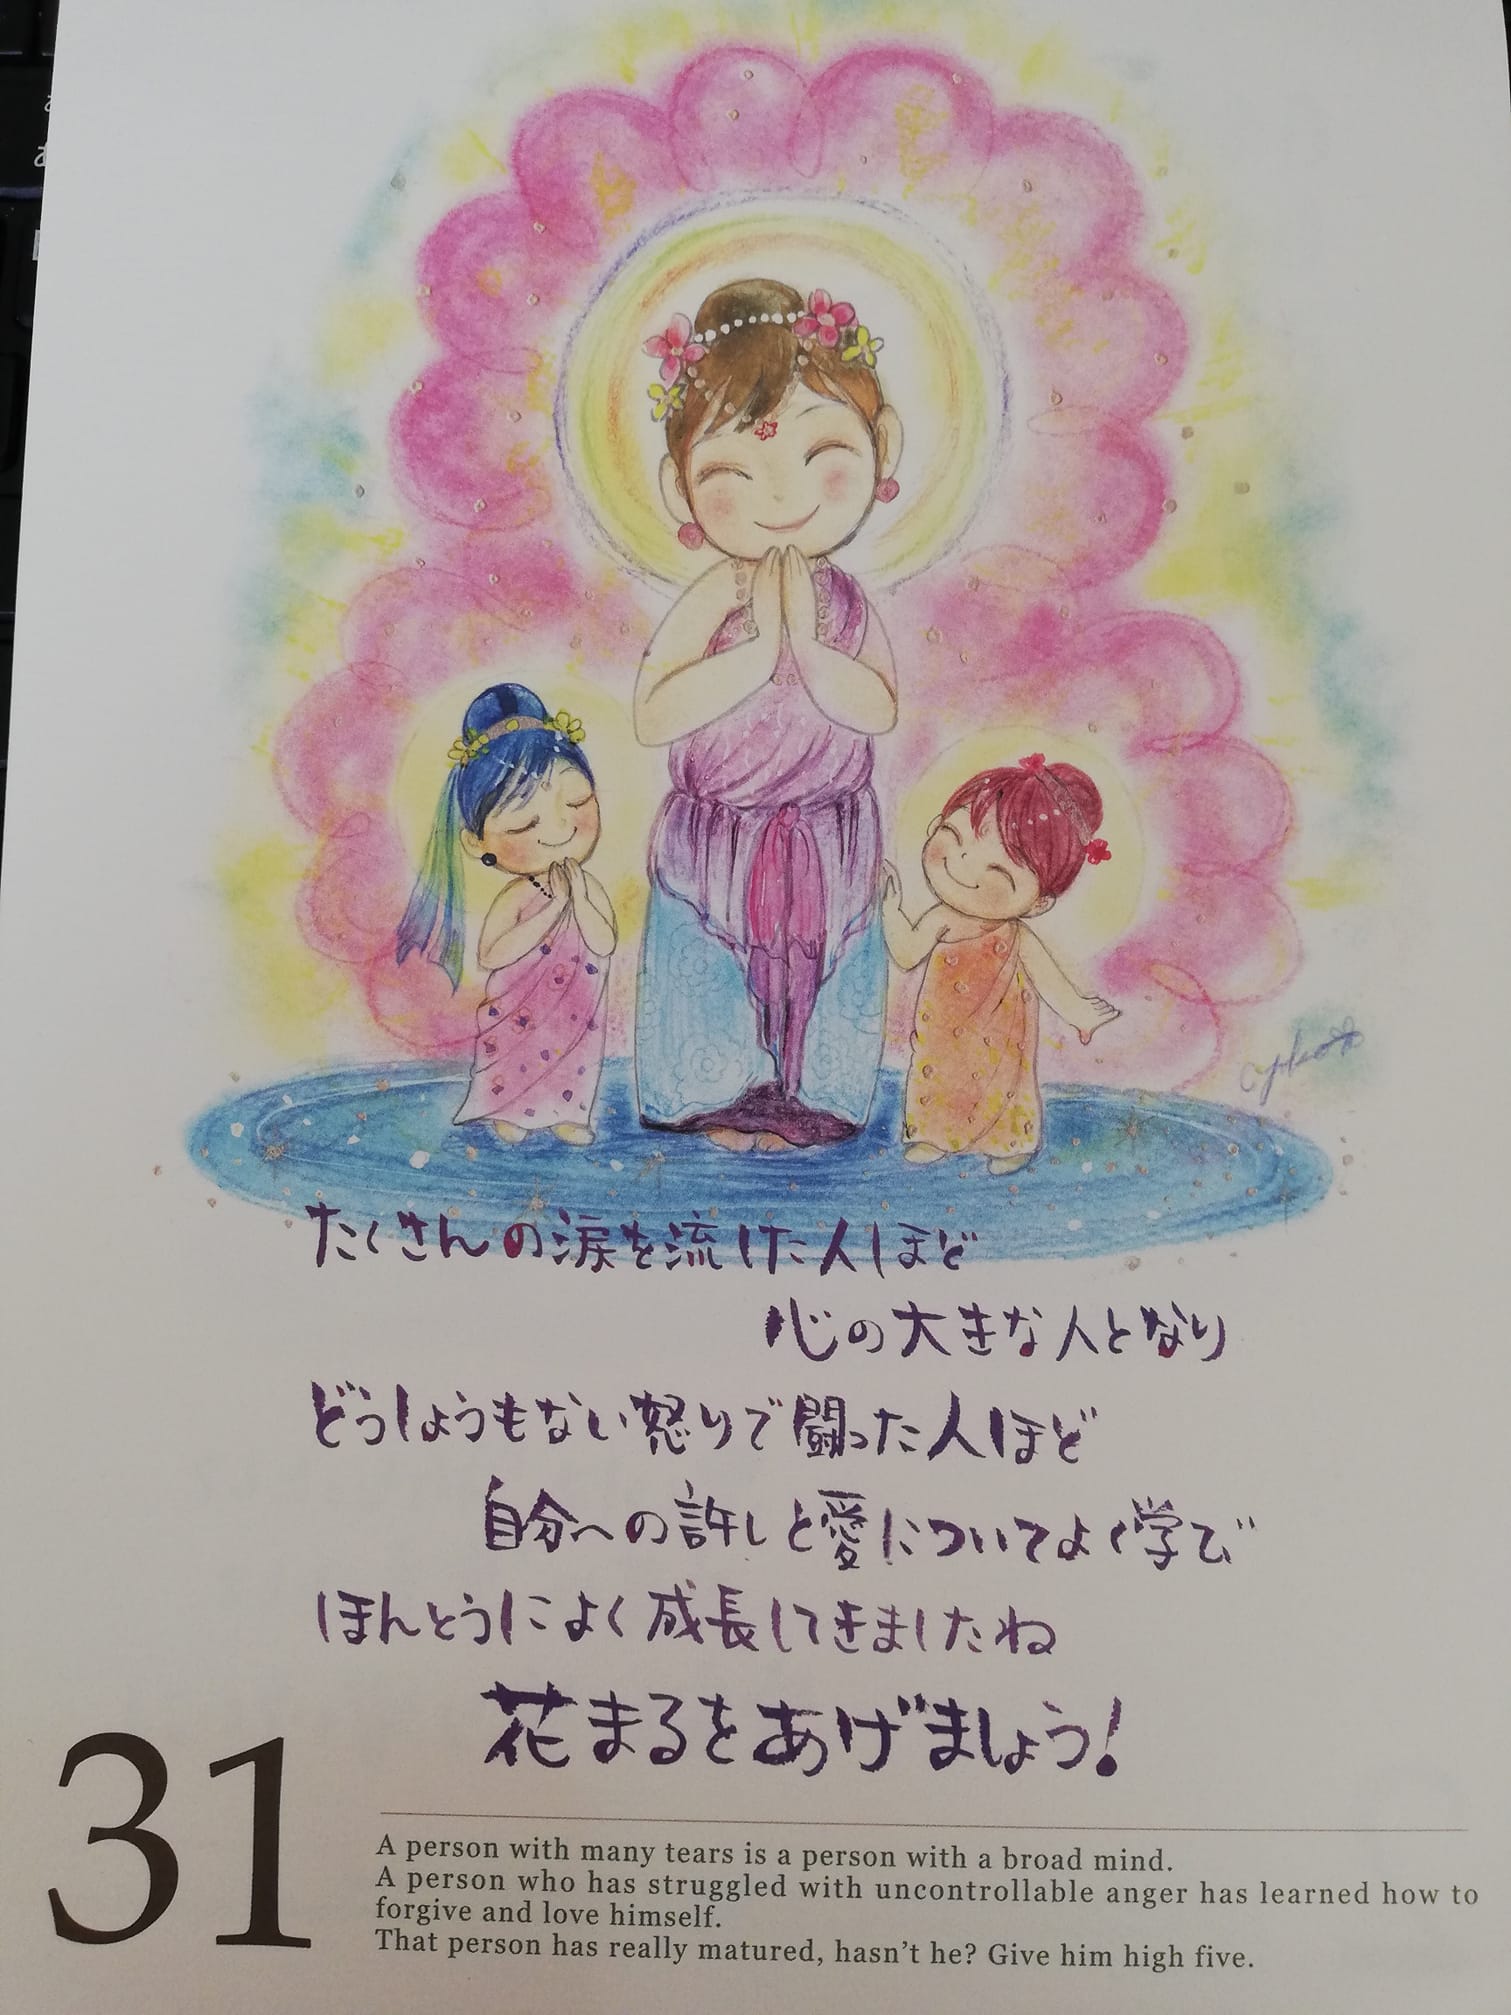 たくさんの涙を流した人ほど
心の大きな人となり
どうしょうもない怒りで闘った人ほど
自分への許しと愛についてよく学び
ほんとうによく成長してきましたね
花まるをあげましょう!
31
A person with many tears is a person with a broad mind.
A person who has struggled with uncontrollable anger has learned how to
forgive and love himself.
That person has really matured, hasn't he? Give him high five.